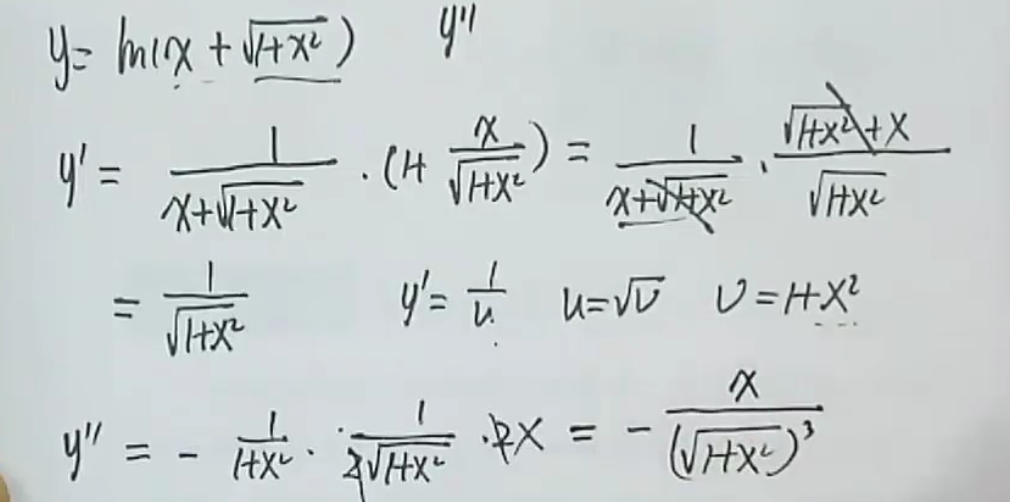 y = ln(x + √(1+x²)) y''
y' = 1/(x+√(1+x²)) · (1+ x/√(1+x²)) = 1/(x+√(1+x²)) · (√(1+x²)+x)/√(1+x²)
= 1/√(1+x²) y' = 1/u u=√v v=1+x²
y'' = - 1/(1+x²) · 1/(2√(1+x²)) · 2x = - x/(√(1+x²))³